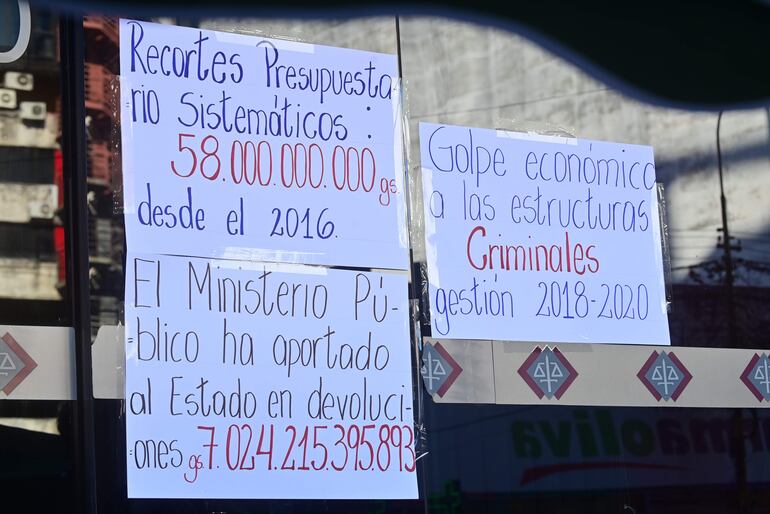 Recortes Presupuesta
rio Sistemáticos :
58.000.000.000 gs.
desde el 2016.
El Ministerio Pú-
blico ha aportado
al Estado en devoluci-
ones gs 7.024.215.395.893
Golpe económico
a las estructuras
Criminales
gestión 2018-2020
rmaoliva